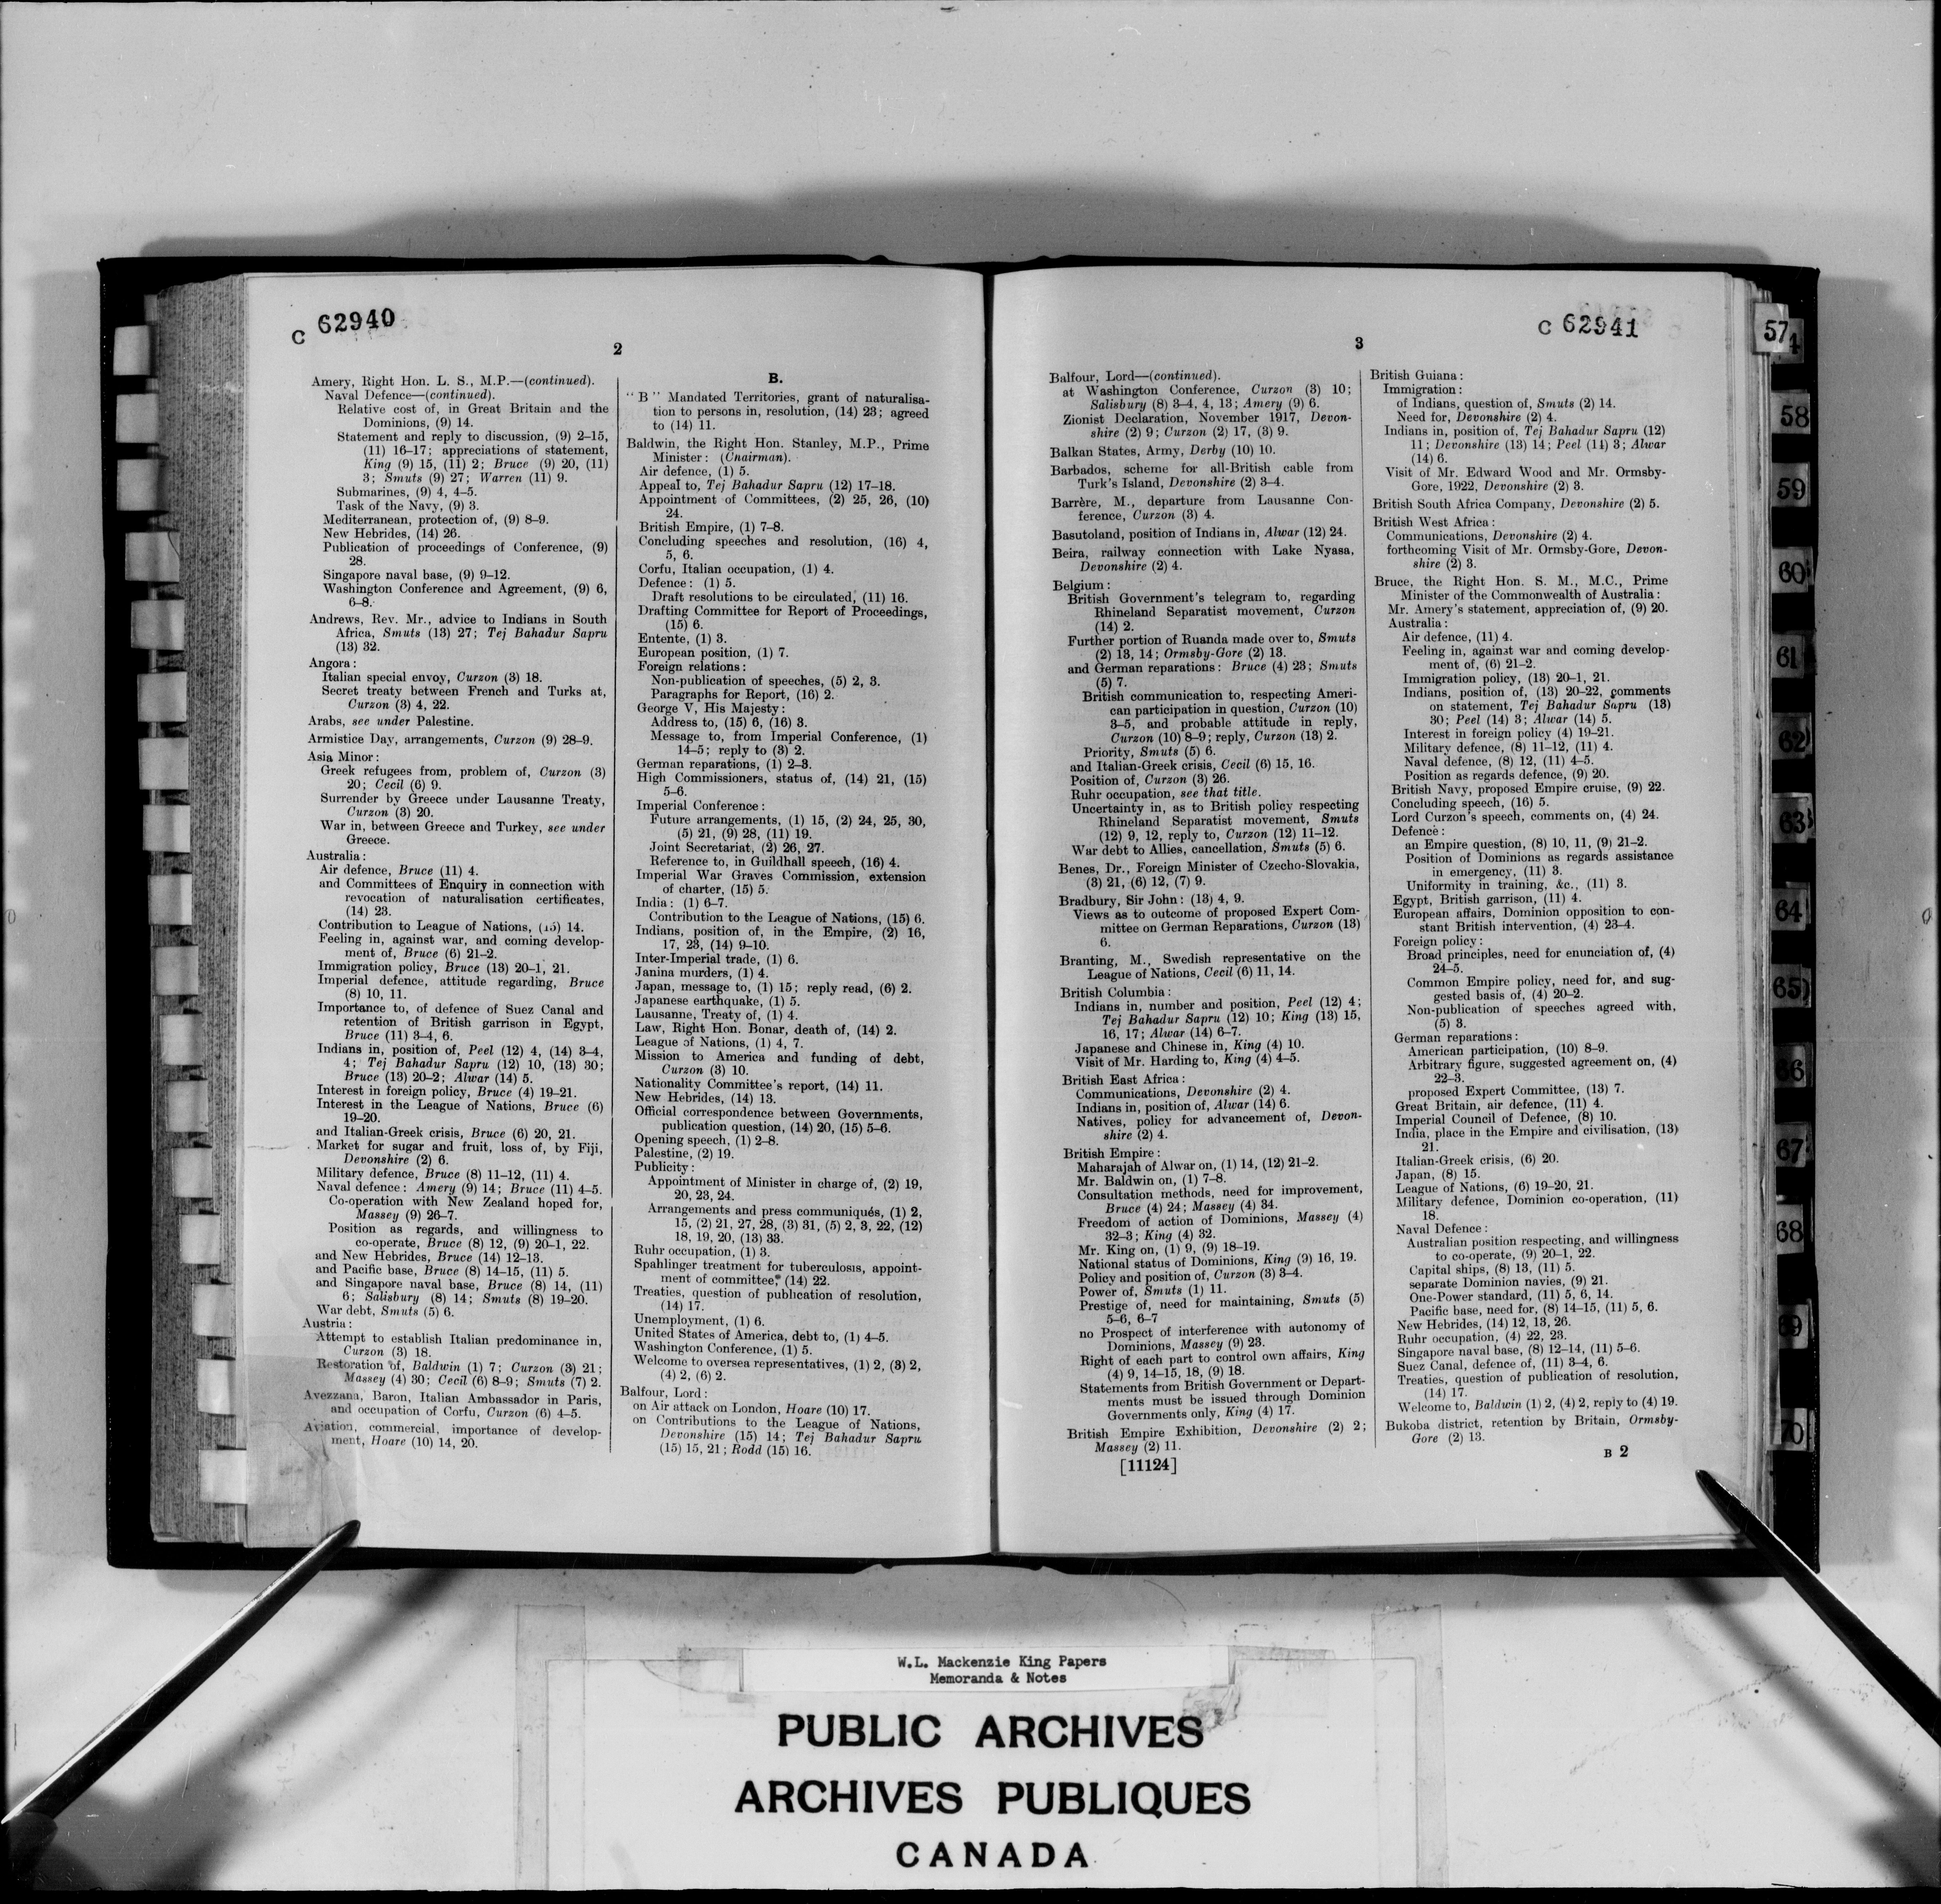 C 62940
2
Amery, Right Hon. L. S., M.P.—(continued).
Naval Defence—(continued).
Relative cost of, in Great Britain and the
Dominions, (9) 14.
Statement and reply to discussion, (9) 2–15,
(11) 16–17; appreciations of statement,
King (9) 15, (11) 2; Bruce (9) 20, (11)
3; Smuts (9) 27; Warren (11) 9.
Submarines, (9) 4, 4–5.
Task of the Navy, (9) 3.
Mediterranean, protection of, (9) 8–9.
New Hebrides, (14) 26.
Publication of proceedings of Conference, (9)
28.
Singapore naval base, (9) 9–12.
Washington Conference and Agreement, (9) 6,
6–8.
Andrews, Rev. Mr., advice to Indians in South
Africa, Smuts (13) 27; Tej Bahadur Sapru
(13) 32.
Angora:
Italian special envoy, Curzon (3) 18.
Secret treaty between French and Turks at,
Curzon (3) 4, 22.
Arabs, see under Palestine.
Armistice Day, arrangements, Curzon (9) 28–9.
Asia Minor:
Greek refugees from, problem of, Curzon (3)
20; Cecil (6) 9.
Surrender by Greece under Lausanne Treaty,
Curzon (3) 20.
War in, between Greece and Turkey, see under
Greece.
Australia:
Air defence, Bruce (11) 4.
and Committees of Enquiry in connection with
revocation of naturalisation certificates,
(14) 23.
Contribution to League of Nations, (15) 14.
Feeling in, against war, and coming develop-
ment of, Bruce (6) 21–2.
Immigration policy, Bruce (13) 20–1, 21.
Imperial defence, attitude regarding, Bruce
(8) 10, 11.
Importance to, of defence of Suez Canal and
retention of British garrison in Egypt,
Bruce (11) 3–4, 6.
Indians in, position of, Peel (12) 4, (14) 3–4,
4; Tej Bahadur Sapru (12) 10, (13) 30;
Bruce (13) 20–2; Alwar (14) 5.
Interest in foreign policy, Bruce (4) 19–21.
Interest in the League of Nations, Bruce (6)
19–20.
and Italian-Greek crisis, Bruce (6) 20, 21.
Market for sugar and fruit, loss of, by Fiji,
Devonshire (2) 6.
Military defence, Bruce (8) 11–12, (11) 4.
Naval defence: Amery (9) 14; Bruce (11) 4–5.
Co-operation with New Zealand hoped for,
Massey (9) 26–7.
Position as regards, and willingness to
co-operate, Bruce (8) 12, (9) 20–1, 22.
and New Hebrides, Bruce (14) 12–13.
and Pacific base, Bruce (8) 14–15, (11) 5.
and Singapore naval base, Bruce (8) 14, (11)
6; Salisbury (8) 14; Smuts (8) 19–20.
War debt, Smuts (5) 6.
Austria:
Attempt to establish Italian predominance in,
Curzon (3) 18.
Restoration of, Baldwin (1) 7; Curzon (3) 21;
Massey (4) 30; Cecil (6) 8–9; Smuts (7) 2.
Avezzana, Baron, Italian Ambassador in Paris,
and occupation of Corfu, Curzon (6) 4–5.
Aviation, commercial, importance of develop-
ment, Hoare (10) 14, 20.
B.
"B" Mandated Territories, grant of naturalisa-
tion to persons in, resolution, (14) 23; agreed
to (14) 11.
Baldwin, the Right Hon. Stanley, M.P., Prime
Minister: (Chairman).
Air defence, (1) 5.
Appeal to, Tej Bahadur Sapru (12) 17–18.
Appointment of Committees, (2) 25, 26, (10)
24.
British Empire, (1) 7–8.
Concluding speeches and resolution, (16) 4,
5, 6.
Corfu, Italian occupation, (1) 4.
Defence: (1) 5.
Draft resolutions to be circulated, (11) 16.
Drafting Committee for Report of Proceedings,
(15) 6.
Entente, (1) 3.
European position, (1) 7.
Foreign relations:
Non-publication of speeches, (5) 2, 3.
Paragraphs for Report, (16) 2.
George V, His Majesty:
Address to, (15) 6, (16) 3.
Message to, from Imperial Conference, (1)
14–5; reply to (3) 2.
German reparations, (1) 2–3.
High Commissioners, status of, (14) 21, (15)
5–6.
Imperial Conference:
Future arrangements, (1) 15, (2) 24, 25, 30,
(5) 21, (9) 28, (11) 19.
Joint Secretariat, (2) 26, 27.
Reference to, in Guildhall speech, (16) 4.
Imperial War Graves Commission, extension
of charter, (15) 5.
India: (1) 6–7.
Contribution to the League of Nations, (15) 6.
Indians, position of, in the Empire, (2) 16,
17, 23, (14) 9–10.
Inter-Imperial trade, (1) 6.
Janina murders, (1) 4.
Japan, message to, (1) 15; reply read, (6) 2.
Japanese earthquake, (1) 5.
Lausanne, Treaty of, (1) 4.
Law, Right Hon. Bonar, death of, (14) 2.
League of Nations, (1) 4, 7.
Mission to America and funding of debt,
Curzon (3) 10.
Nationality Committee's report, (14) 11.
New Hebrides, (14) 13.
Official correspondence between Governments,
publication question, (14) 20, (15) 5–6.
Opening speech, (1) 2–8.
Palestine, (2) 19.
Publicity:
Appointment of Minister in charge of, (2) 19,
20, 23, 24.
Arrangements and press communiqués, (1) 2,
15, (2) 21, 27, 28, (3) 31, (5) 2, 3, 22, (12)
18, 19, 20, (13) 33.
Ruhr occupation, (1) 3.
Spahlinger treatment for tuberculosis, appoint-
ment of committee, (14) 22.
Treaties, question of publication of resolution,
(14) 17.
Unemployment, (1) 6.
United States of America, debt to, (1) 4–5.
Washington Conference, (1) 5.
Welcome to oversea representatives, (1) 2, (3) 2,
(4) 2, (6) 2.
Balfour, Lord:
on Air attack on London, Hoare (10) 17.
on Contributions to the League of Nations,
Devonshire (15) 14; Tej Bahadur Sapru
(15) 15, 21; Rodd (15) 16.
C 62941
3
Balfour, Lord—(continued).
at Washington Conference, Curzon (3) 10;
Salisbury (8) 3–4, 4, 13; Amery (9) 6.
Zionist Declaration, November 1917, Devon-
shire (2) 9; Curzon (2) 17, (3) 9.
Balkan States, Army, Derby (10) 10.
Barbados, scheme for all-British cable from
Turk's Island, Devonshire (2) 3–4.
Barrère, M., departure from Lausanne Con-
ference, Curzon (3) 4.
Basutoland, position of Indians in, Alwar (12) 24.
Beira, railway connection with Lake Nyasa,
Devonshire (2) 4.
Belgium:
British Government's telegram to, regarding
Rhineland Separatist movement, Curzon
(14) 2.
Further portion of Ruanda made over to, Smuts
(2) 13, 14; Ormsby-Gore (2) 13.
and German reparations: Bruce (4) 23; Smuts
(5) 7.
British communication to, respecting Ameri-
can participation in question, Curzon (10)
3–5, and probable attitude in reply,
Curzon (10) 8–9; reply, Curzon (13) 2.
Priority, Smuts (5) 6.
and Italian-Greek crisis, Cecil (6) 15, 16.
Position of, Curzon (3) 26.
Ruhr occupation, see that title.
Uncertainty in, as to British policy respecting
Rhineland Separatist movement, Smuts
(12) 9, 12, reply to, Curzon (12) 11–12.
War debt to Allies, cancellation, Smuts (5) 6.
Benes, Dr., Foreign Minister of Czecho-Slovakia,
(3) 21, (6) 12, (7) 9.
Bradbury, Sir John: (13) 4, 9.
Views as to outcome of proposed Expert Com-
mittee on German Reparations, Curzon (13)
6.
Branting, M., Swedish representative on the
League of Nations, Cecil (6) 11, 14.
British Columbia:
Indians in, number and position, Peel (12) 4;
Tej Bahadur Sapru (12) 10; King (13) 15,
16, 17; Alwar (14) 6–7.
Japanese and Chinese in, King (4) 10.
Visit of Mr. Harding to, King (4) 4–5.
British East Africa:
Communications, Devonshire (2) 4.
Indians in, position of, Alwar (14) 6.
Natives, policy for advancement of, Devon-
shire (2) 4.
British Empire:
Maharajah of Alwar on, (1) 14, (12) 21–2.
Mr. Baldwin on, (1) 7–8.
Consultation methods, need for improvement,
Bruce (4) 24; Massey (4) 34.
Freedom of action of Dominions, Massey (4)
32–3; King (4) 32.
Mr. King on, (1) 9, (9) 18–19.
National status of Dominions, King (9) 16, 19.
Policy and position of, Curzon (3) 3–4.
Power of, Smuts (1) 11.
Prestige of, need for maintaining, Smuts (5)
5–6, 6–7
no Prospect of interference with autonomy of
Dominions, Massey (9) 23.
Right of each part to control own affairs, King
(4) 9, 14–15, 18, (9) 18.
Statements from British Government or Depart-
ments must be issued through Dominion
Governments only, King (4) 17.
British Empire Exhibition, Devonshire (2) 2;
Massey (2) 11.
[11124]
British Guiana:
Immigration:
of Indians, question of, Smuts (2) 14.
Need for, Devonshire (2) 4.
Indians in, position of, Tej Bahadur Sapru (12)
11; Devonshire (13) 14; Peel (14) 3; Alwar
(14) 6.
Visit of Mr. Edward Wood and Mr. Ormsby-
Gore, 1922, Devonshire (2) 3.
British South Africa Company, Devonshire (2) 5.
British West Africa:
Communications, Devonshire (2) 4.
forthcoming Visit of Mr. Ormsby-Gore, Devon-
shire (2) 3.
Bruce, the Right Hon. S. M., M.C., Prime
Minister of the Commonwealth of Australia:
Mr. Amery's statement, appreciation of, (9) 20.
Australia:
Air defence, (11) 4.
Feeling in, against war and coming develop-
ment of, (6) 21–2.
Immigration policy, (13) 20–1, 21.
Indians, position of, (13) 20–22, comments
on statement, Tej Bahadur Sapru (13)
30; Peel (14) 3; Alwar (14) 5.
Interest in foreign policy (4) 19–21.
Military defence, (8) 11–12, (11) 4.
Naval defence, (8) 12, (11) 4–5.
Position as regards defence, (9) 20.
British Navy, proposed Empire cruise, (9) 22.
Concluding speech, (16) 5.
Lord Curzon's speech, comments on, (4) 24.
Defence:
an Empire question, (8) 10, 11, (9) 21–2.
Position of Dominions as regards assistance
in emergency, (11) 3.
Uniformity in training, &c., (11) 3.
Egypt, British garrison, (11) 4.
European affairs, Dominion opposition to con-
stant British intervention, (4) 23–4.
Foreign policy:
Broad principles, need for enunciation of, (4)
24–5.
Common Empire policy, need for, and sug-
gested basis of, (4) 20–2.
Non-publication of speeches agreed with,
(5) 3.
German reparations:
American participation, (10) 8–9.
Arbitrary figure, suggested agreement on, (4)
22–3.
proposed Expert Committee, (13) 7.
Great Britain, air defence, (11) 4.
Imperial Council of Defence, (8) 10.
India, place in the Empire and civilisation, (13)
21.
Italian-Greek crisis, (6) 20.
Japan, (8) 15.
League of Nations, (6) 19–20, 21.
Military defence, Dominion co-operation, (11)
18.
Naval Defence:
Australian position respecting, and willingness
to co-operate, (9) 20–1, 22.
Capital ships, (8) 13, (11) 5.
separate Dominion navies, (9) 21.
One-Power standard, (11) 5, 6, 14.
Pacific base, need for, (8) 14–15, (11) 5, 6.
New Hebrides, (14) 12, 13, 26.
Ruhr occupation, (4) 22, 23.
Singapore naval base, (8) 12–14, (11) 5–6.
Suez Canal, defence of, (11) 3–4, 6.
Treaties, question of publication of resolution,
(14) 17.
Welcome to, Baldwin (1) 2, (4) 2, reply to (4) 19.
Bukoba district, retention by Britain, Ormsby-
Gore (2) 13.
B 2
57
4
58
59
60
61
62
63
64
65
66
67
68
69
70
W.L. Mackenzie King Papers
Memoranda & Notes
PUBLIC ARCHIVES
ARCHIVES PUBLIQUES
CANADA